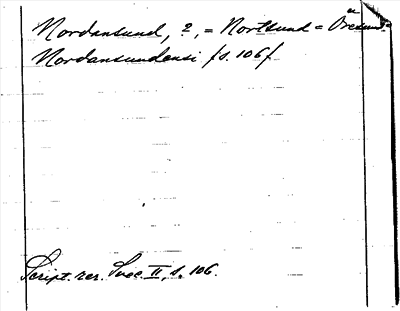 Nordansund, ?, = Nortsund = Öresund?
Nordansundensi /s. 106/
Script. rer. Suec. II, s. 106.